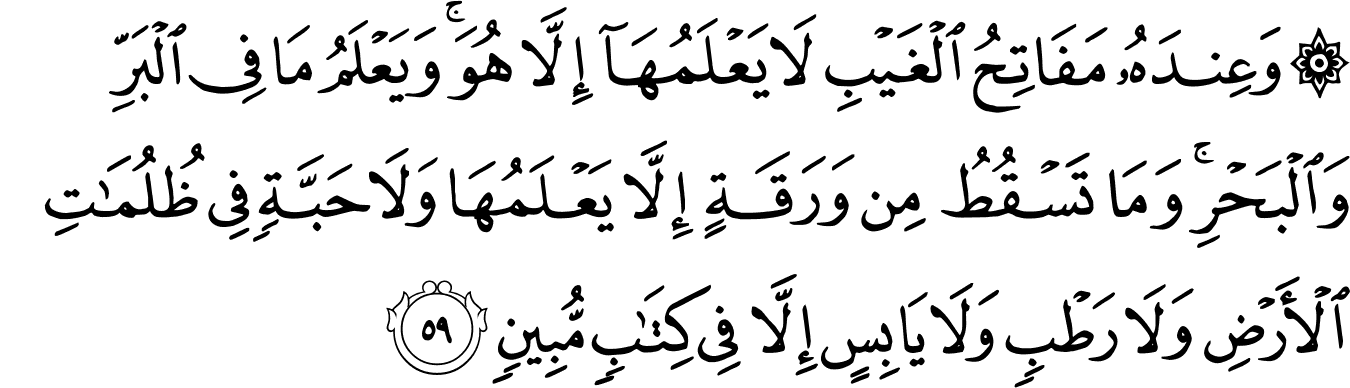 ۞ وَعِندَهُۥ مَفَاتِحُ ٱلْغَيْبِ لَا يَعْلَمُهَآ إِلَّا هُوَ ۚ وَيَعْلَمُ مَا فِى ٱلْبَرِّ
وَٱلْبَحْرِ ۚ وَمَا تَسْقُطُ مِن وَرَقَةٍ إِلَّا يَعْلَمُهَا وَلَا حَبَّةٍ فِى ظُلُمَٰتِ
ٱلْأَرْضِ وَلَا رَطْبٍ وَلَا يَابِسٍ إِلَّا فِى كِتَٰبٍ مُّبِينٍ ٥٩